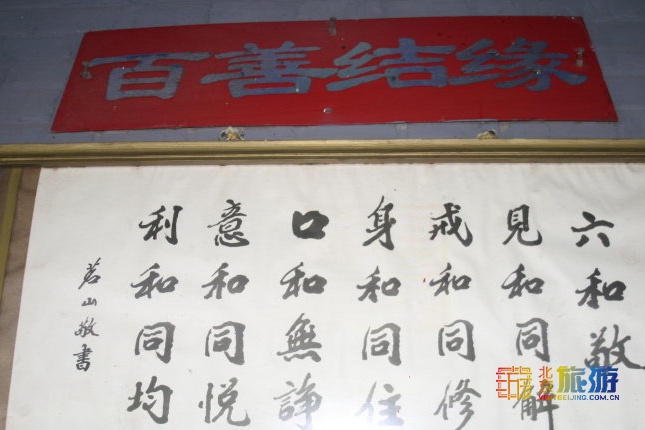 百善结缘
六和敬
見和同解
戒和同修
身和同住
口和無諍
意和同悦
利和同均
茗山敬書
北京旅游
VISITBEIJING.COM.CN